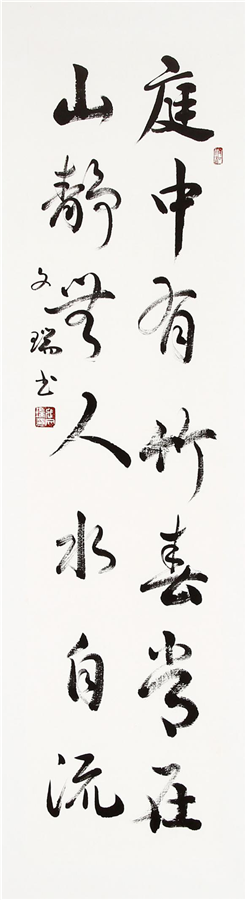 庭中有竹春常在
山靜無人水自流
文瑞书